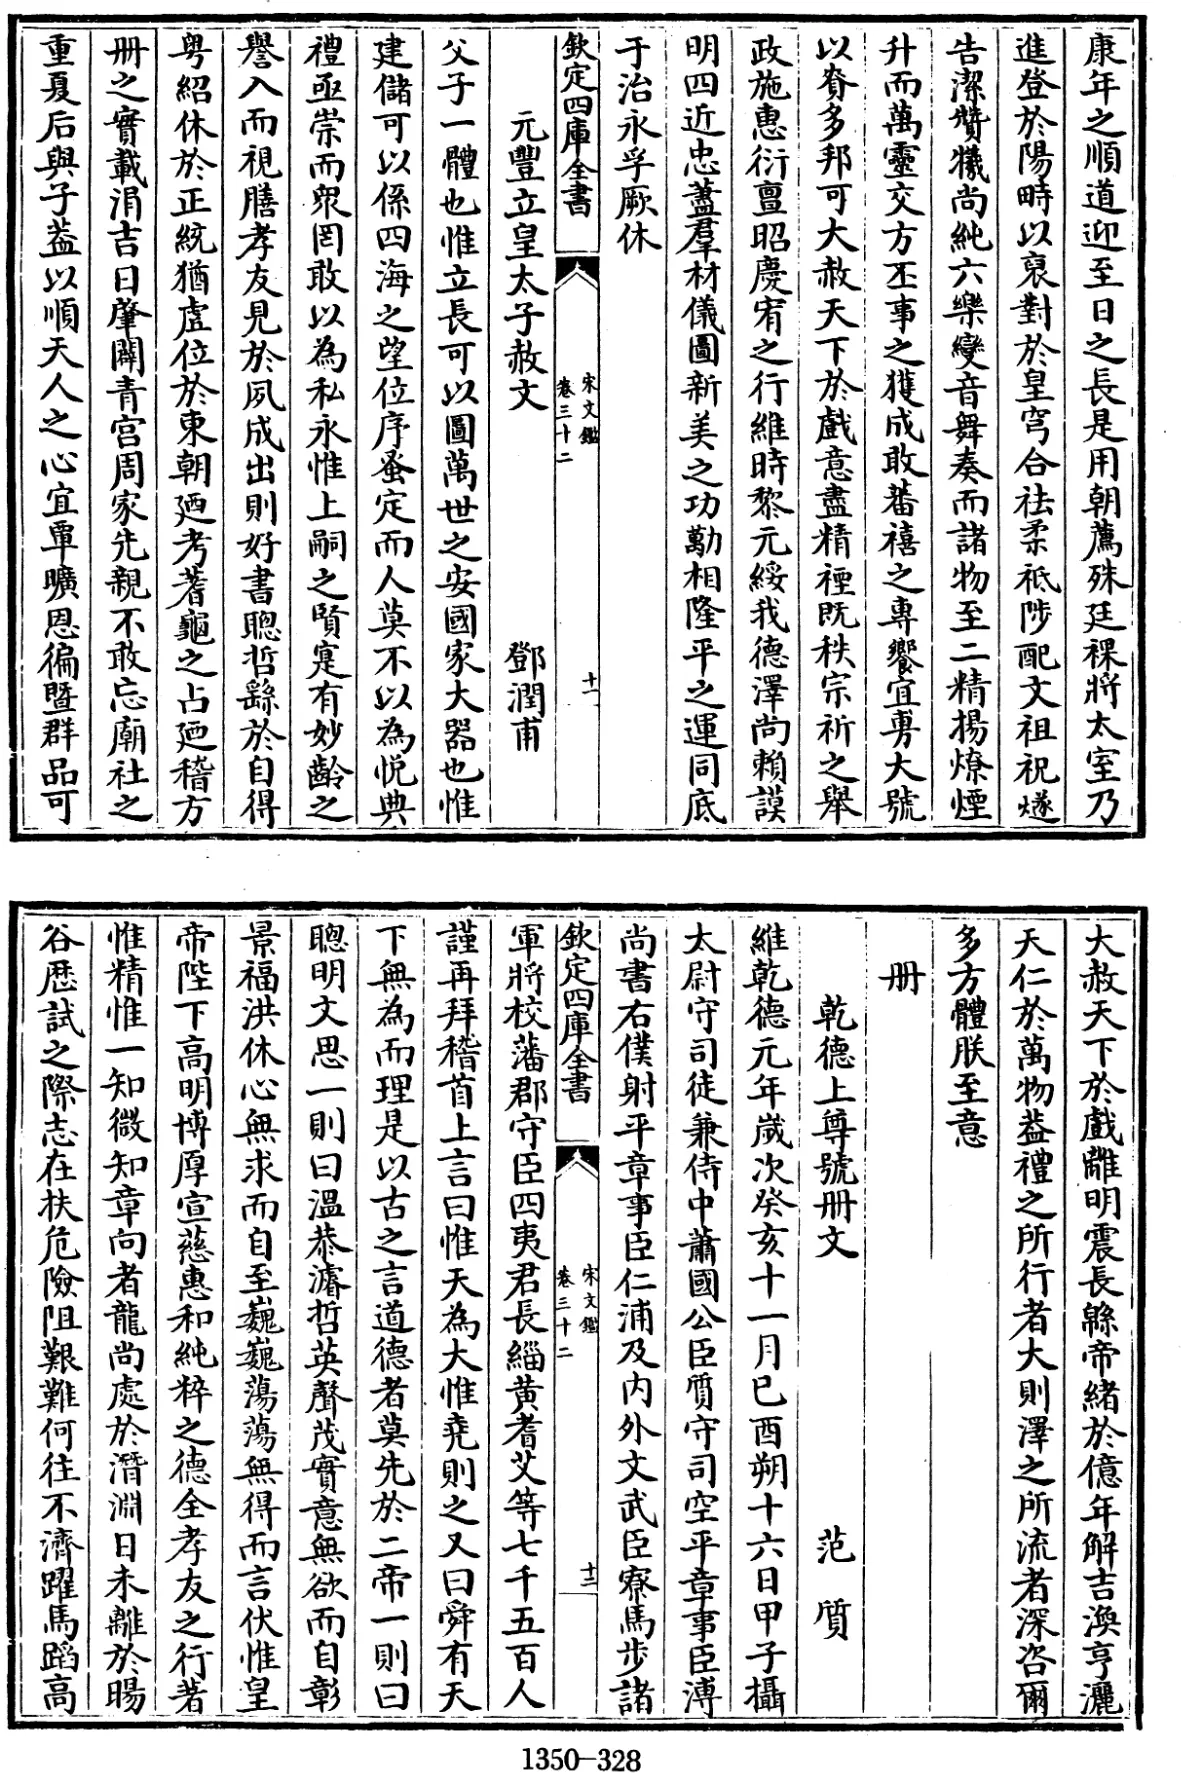 康年之順道迎至日之長是用朝薦殊廷祼將太室乃
進登於陽畤以裒對於皇穹合袪柔祇陟配文祖祝燧
告潔贊犧尚純六樂變音舞奏而諸物至二精揚燎煙
升而萬靈交方丕事之獲成敢蕃禧之專饗宜旉大號
以賚多邦可大赦天下於戲意盡精禋既秩宗祈之舉
政施惠衍亶昭慶宥之行維時黎元綏我德澤尚賴謨
明四近忠藎羣材儀圖新美之功勱相隆平之運同底
于治永孚厥休
欽定四庫全書
宋文鑑
卷三十二
十一
元豐立皇太子赦文 鄧潤甫
父子一體也惟立長可以圖萬世之安國家大器也惟
建儲可以係四海之望位序蚤定而人莫不以為悦典
禮亟崇而衆罔敢以為私永惟上嗣之賢寔有妙齡之
譽入而視膳孝友見於夙成出則好書聰哲繇於自得
粤紹休於正統猶虛位於東朝廼考蓍龜之占廼稽方
册之實載涓吉日肇闢青宫周家先親不敢忘廟社之
重夏后與子葢以順天人之心宜覃曠恩徧暨群品可
大赦天下於戲離明震長緜帝緒於億年解吉渙亨灑
天仁於萬物葢禮之所行者大則澤之所流者深咨爾
多方體朕至意
册
乾德上尊號册文 范質
維乾德元年歲次癸亥十一月已酉朔十六日甲子攝
太尉守司徒兼侍中蕭國公臣質守司空平章事臣溥
尚書右僕射平章事臣仁浦及内外文武臣寮馬步諸
欽定四庫全書
宋文鑑
卷三十二
十二
軍將校藩郡守臣四夷君長緇黄耆艾等七千五百人
謹再拜稽首上言曰惟天為大惟堯則之又曰舜有天
下無為而理是以古之言道德者莫先於二帝一則曰
聰明文思一則曰温恭濬哲英聲茂實意無欲而自彰
景福洪休心無求而自至巍巍蕩蕩無得而言伏惟皇
帝陛下高明博厚宣慈惠和純粹之德全孝友之行著
惟精惟一知微知章向者龍尚處於潛淵日未離於暘
谷歴試之際志在扶危險阻艱難何往不濟躍馬蹈高
1350—328